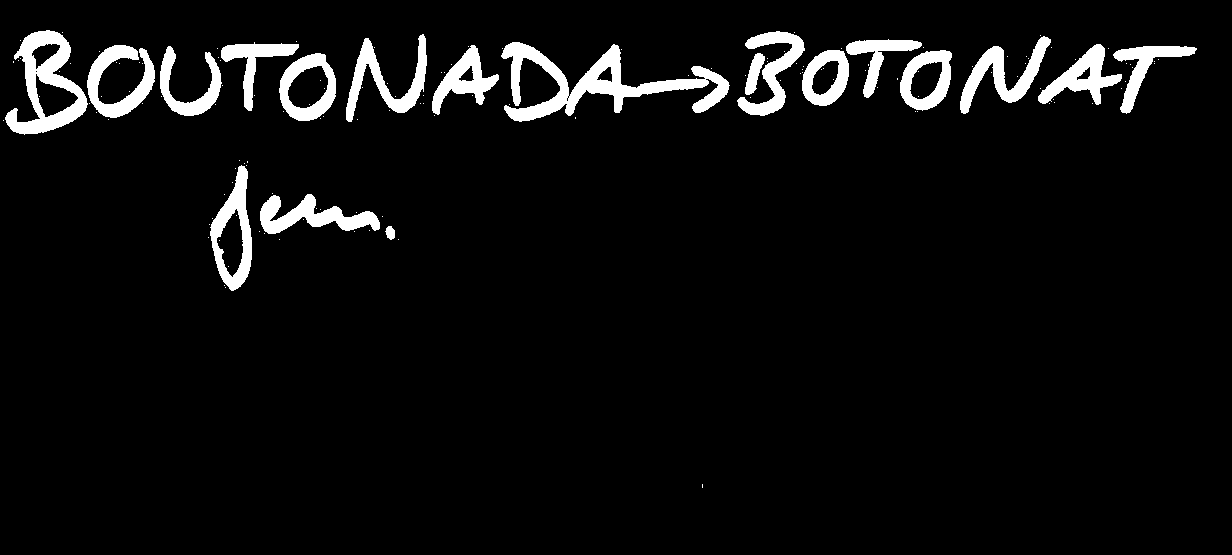 BOUTONADA → BOTONAT
fem.